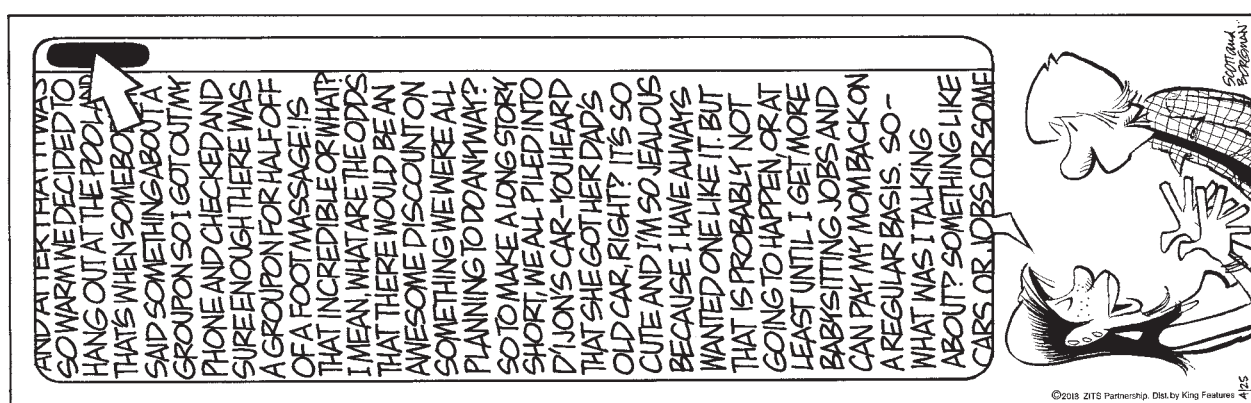 AND AFTER THAT IT WAS
SO WARM WE DECIDED TO
HANG OUT AT THE POOL AND
THAT'S WHEN SOMEBO
SAID SOMETHING ABOUT A
GROUPON SO I GOT OUT MY
PHONE AND CHECKED AND
SURE ENOUGH THERE WAS
A GROUPON FOR HALF OFF
OF A FOOT MASSAGE! IS
THAT INCREDIBLE OR WHAT?
I MEAN, WHAT ARE THE ODDS
THAT THERE WOULD BE AN
AWESOME DISCOUNT ON
SOMETHING WE WERE ALL
PLANNING TO DO ANYWAY?
SO TO MAKE A LONG STORY
SHORT, WE ALL PILED INTO
D'IJON'S CAR-YOU HEARD
THAT SHE GOT HER DAD'S
OLD CAR, RIGHT? IT'S SO
CUTE AND I'M SO JEALOUS
BECAUSE I HAVE ALWAYS
WANTED ONE LIKE IT. BUT
THAT IS PROBABLY NOT
GOING TO HAPPEN, OR AT
LEAST UNTIL I GET MORE
BABYSITTING JOBS AND
CAN PAY MY MOM BACK ON
A REGULAR BASIS. SO-
WHAT WAS I TALKING
ABOUT? SOMETHING LIKE
CARS OR JOBS OR SOME
SCOTT and
BORGMAN
©2013 ZITS Partnership. Dist. by King Features
4/25